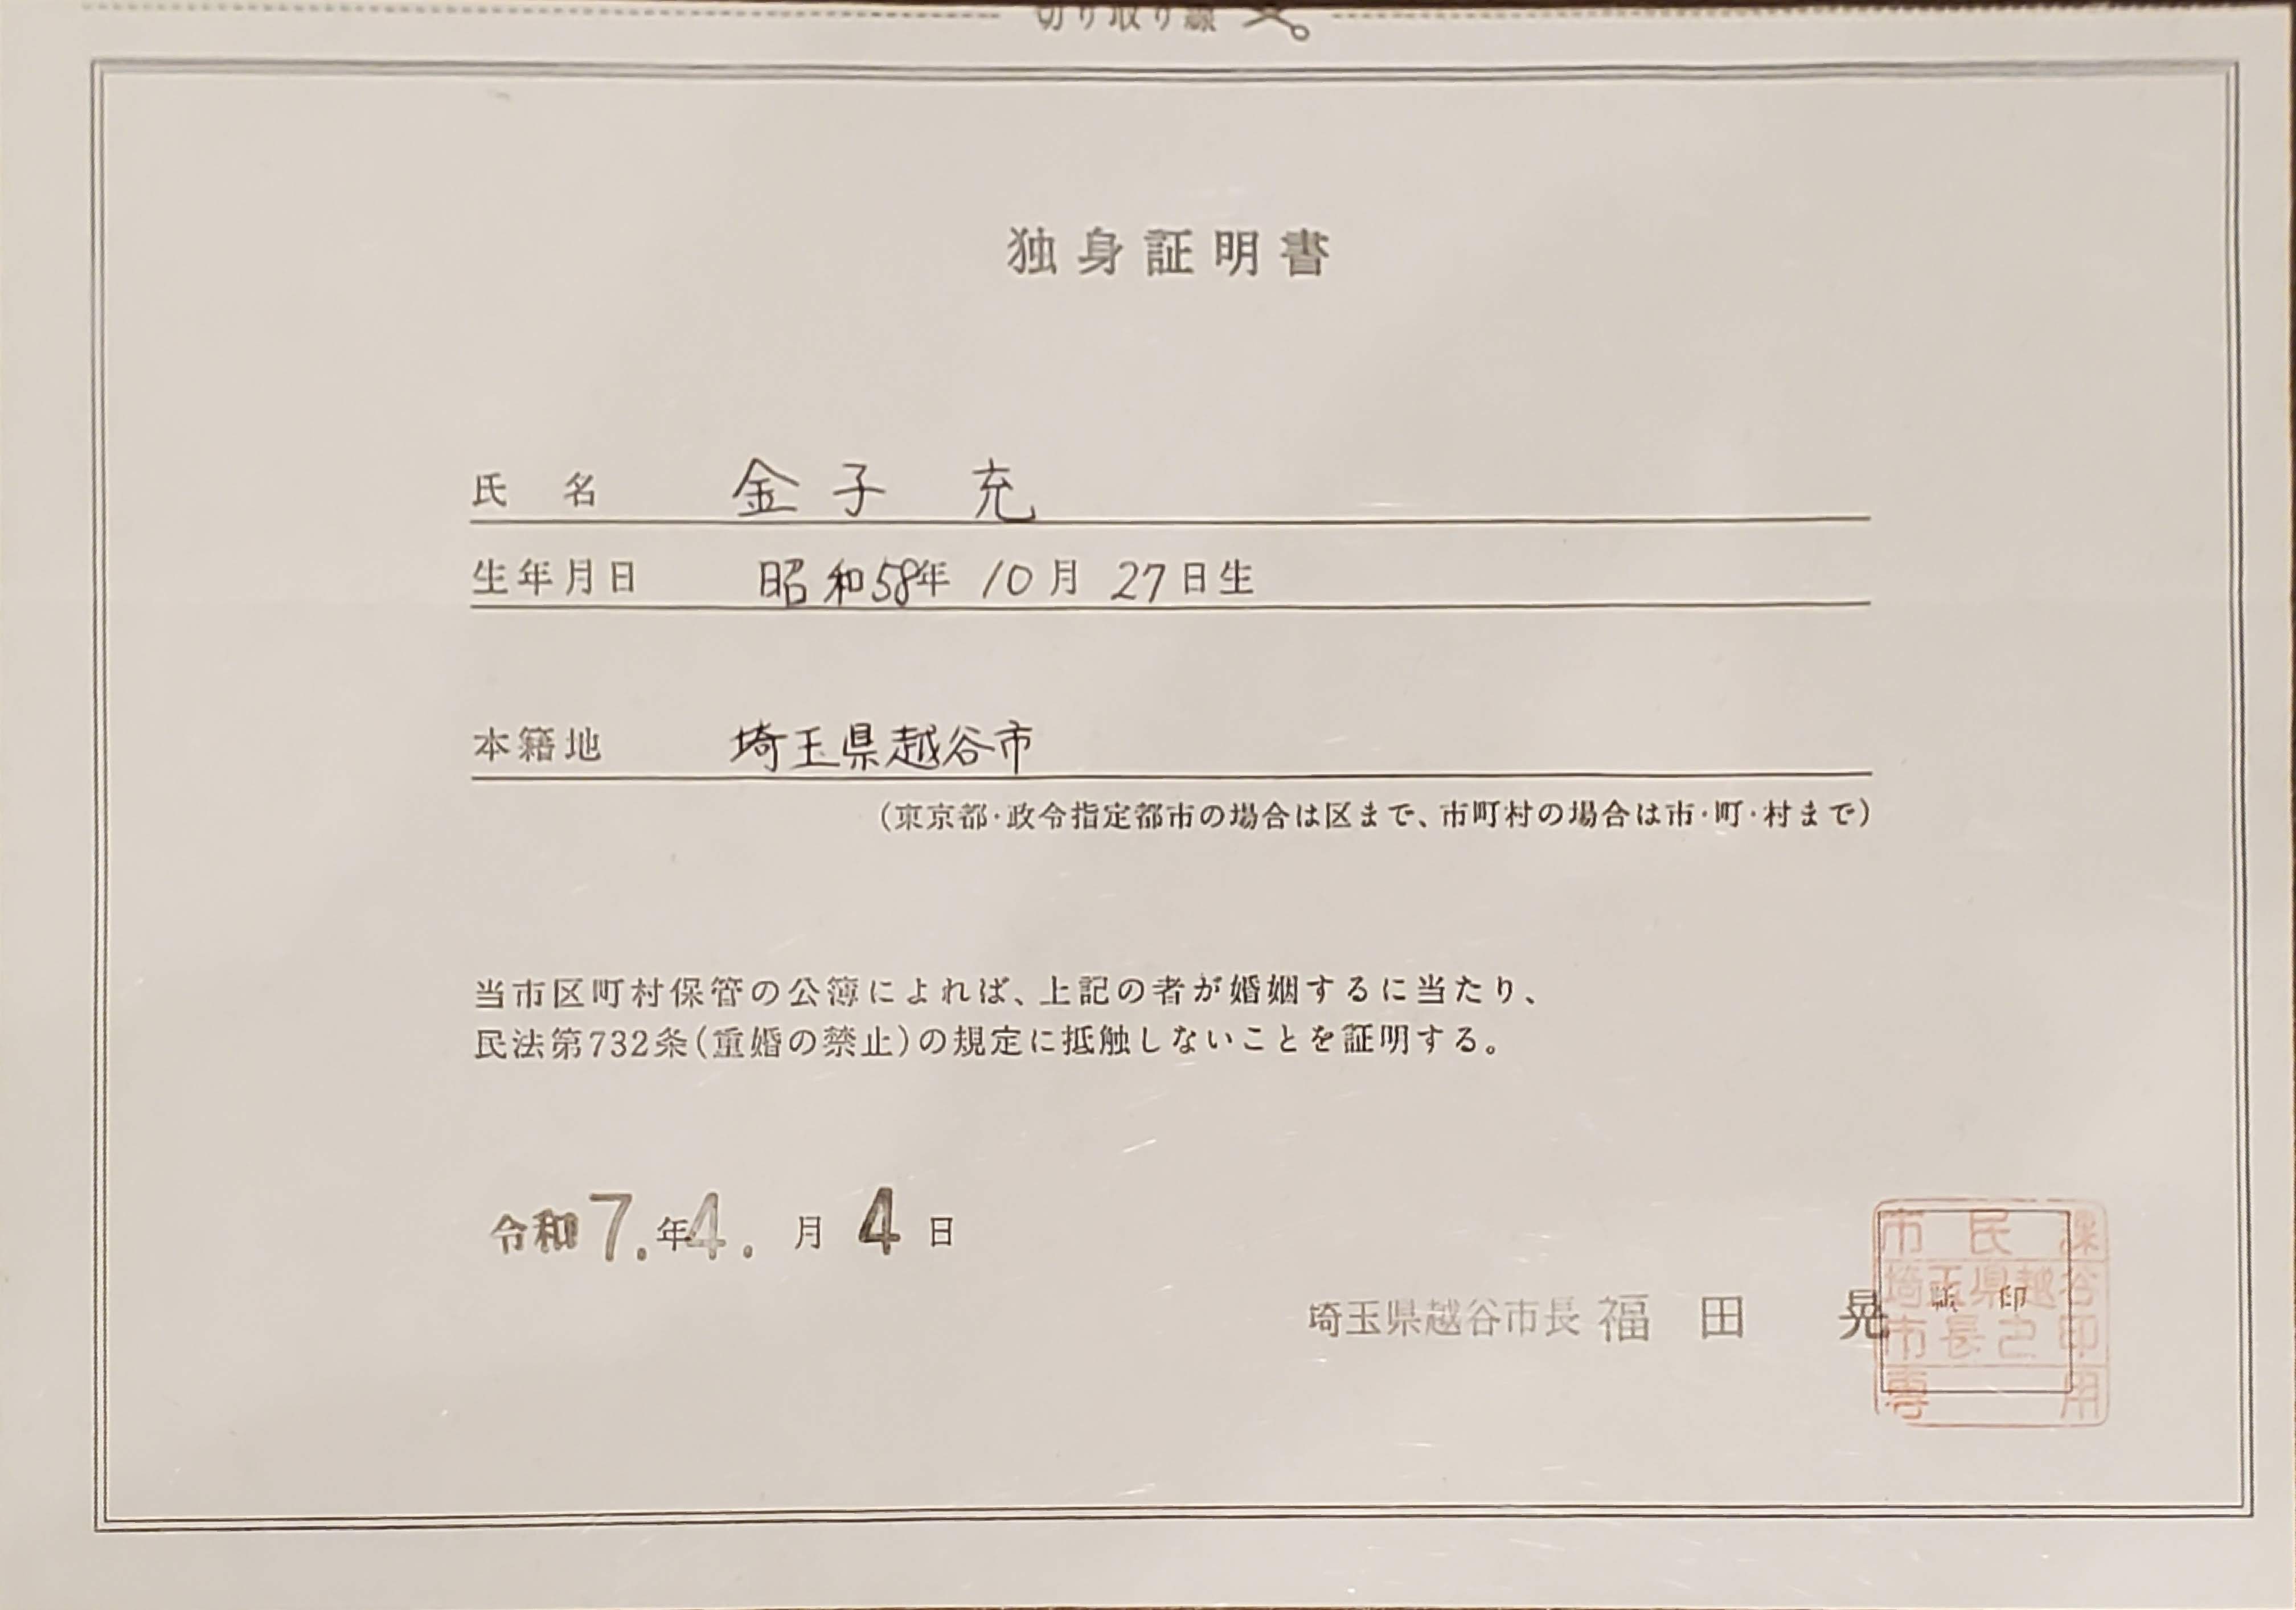 切り取り線
独身証明書
氏 名 金子 充
生年月日 昭和58年 10月 27日生
本籍地 埼玉県越谷市
(東京都・政令指定都市の場合は区まで、市町村の場合は市・町・村まで)
当市区町村保管の公簿によれば、上記の者が婚姻するに当たり、
民法第732条(重婚の禁止)の規定に抵触しないことを証明する。
令和7.年4.月4日
埼玉県越谷市長 福田 晃
市民課
埼玉県越谷
市長之印
専用
印